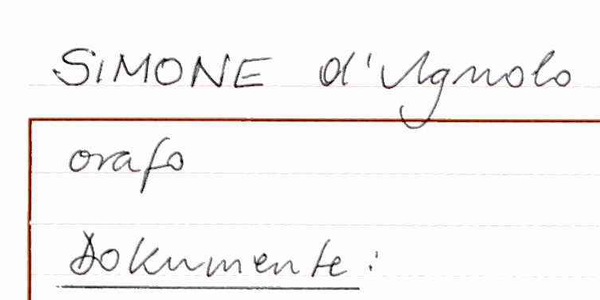 SIMONE d'Agnolo
orafo
Dokumente: